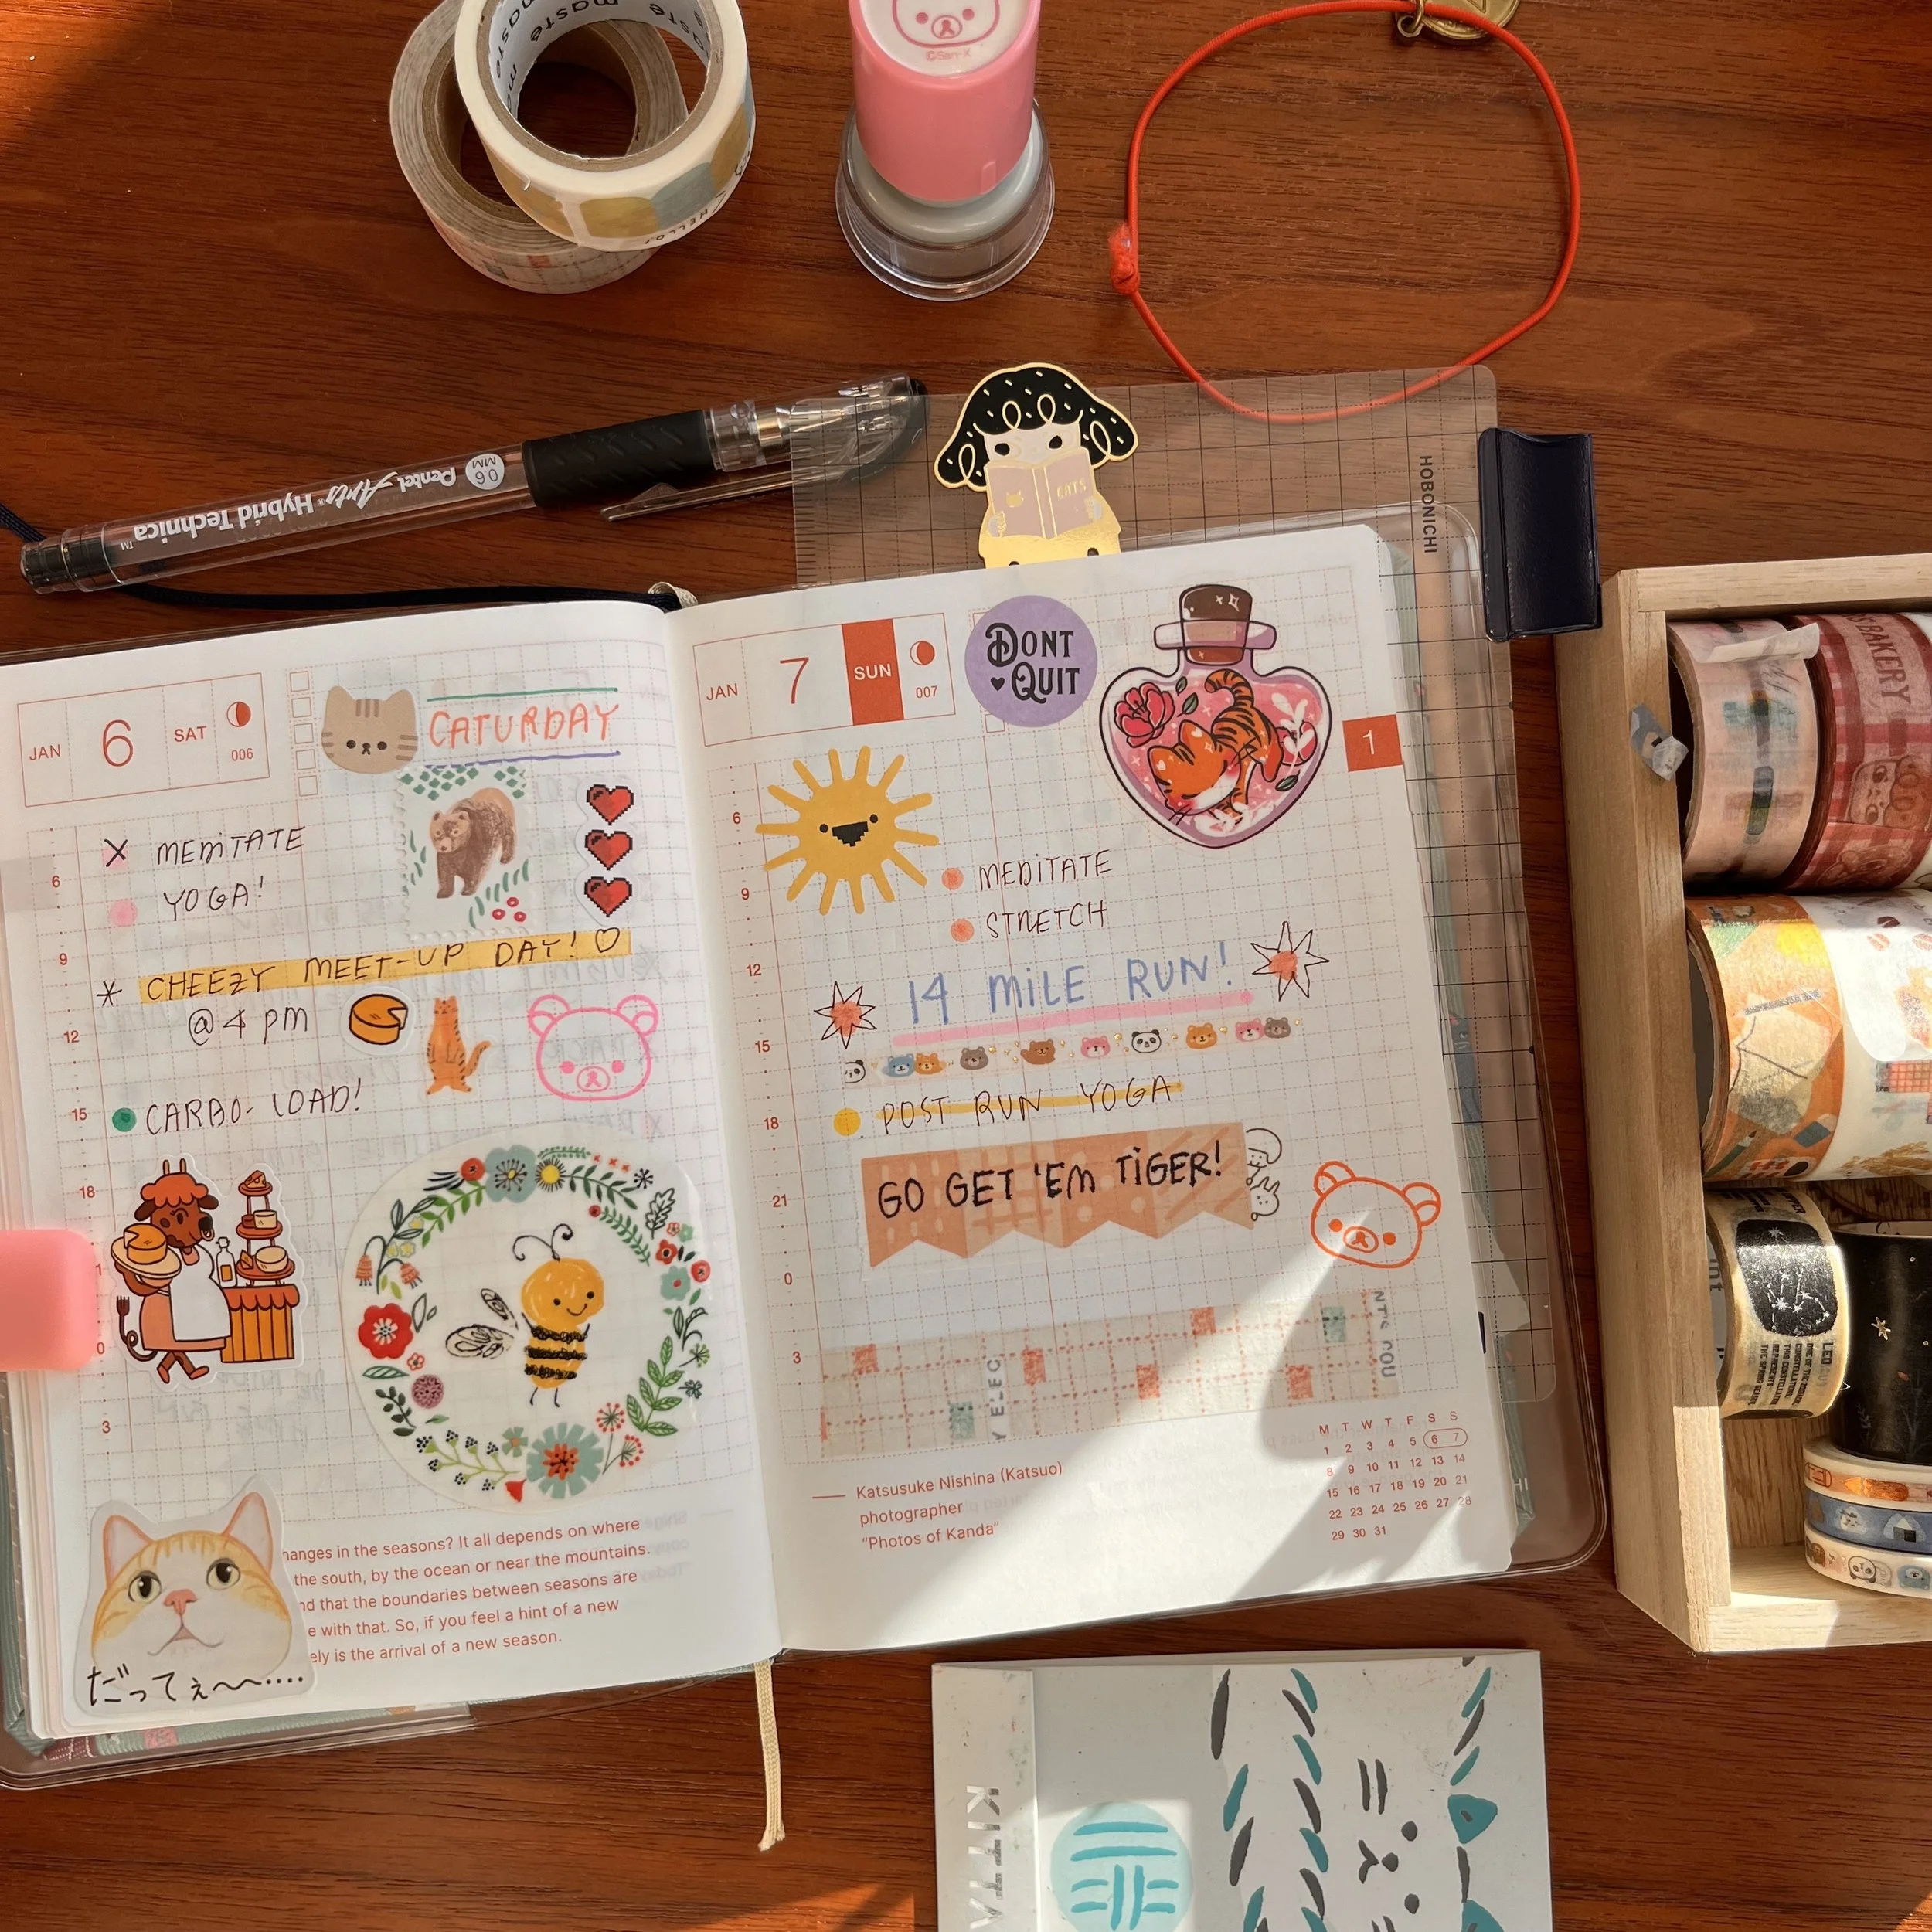 maste
maste
©San-X
HELLO!
Pentel Arts® Hybrid Technica™
0.6 MM
CATS
HOBONICHI
JAN 6 SAT 006
CATURDAY
X MEDITATE
YOGA!
* CHEEZY MEET-UP DAY! ♡
@ 4 PM
CARBO-LOAD!
6
9
12
15
18
0
3
hanges in the seasons? It all depends on where
the south, by the ocean or near the mountains.
nd that the boundaries between seasons are
e with that. So, if you feel a hint of a new
ely is the arrival of a new season.
だってぇ〜〜....
JAN 7 SUN 007
DONT
QUIT
1
MEDITATE
STRETCH
14 MILE RUN!
POST RUN YOGA
GO GET 'EM TIGER!
6
9
12
15
18
21
0
3
Katsusuke Nishina (Katsuo)
photographer
“Photos of Kanda”
M T W T F S S
1 2 3 4 5 6 7
8 9 10 11 12 13 14
15 16 17 18 19 20 21
22 23 24 25 26 27 28
29 30 31
BAKERY
LEO
ONE OF THE ZODIAC
CONSTELLATIONS,
THIS CONSTELLATION
REPRESENTS
KITTA